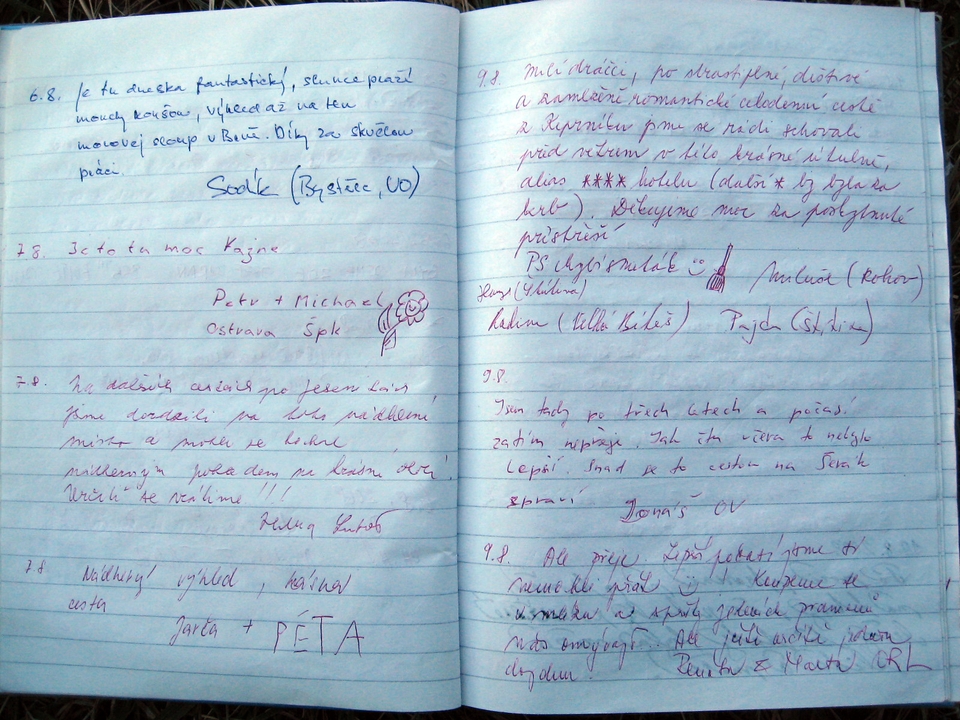 6.8. Je tu dneska fantasticky, slunce praží
mouchy koušou, výhled až na ten
morovej sloup v Brně. Díky za skvělou
práci.
Sodík (Bystřec, UO)
7.8. Je to tu moc Kájne
Petr + Michael
Ostrava Špk
7.8. Na dalších cestách po Jeseníkách
jsme dorazili na toto nádherné
místo a mohli se kochat
nádherným pohledem na krásné okolí.
Určitě se vrátíme!!!
7.8. Nádherný výhled, krásná
cesta
Jarka + PÉTA
9.8. Milí dráčci, po strastiplné, dištivé
a zamlžené romantické celodenní cestě
z Keprníku jsme se rádi schovali
před větrem v této krásné útulně,
alias **** hotelu (další * by byla za
krb). Děkujeme moc za poskytnuté
přístřeší
PS Chybí smeták
Miluše (Rohov)
Radim (Velká Bíteš) Pajda
9.8.
Jsem tady po třech letech a počasí
zatím nepřeje. Jak čtu včera to nebylo
lepší. Snad se to cestou na Šerák
spraví Jonáš OV
9.8. Ale přeje. Lepší počasí jsme si
nemohli přát ! Koupeme se
v mraku a spršky ledových pramenů
nás omývají. Ale ještě určitě
dojdem! Renata & Marta ORL